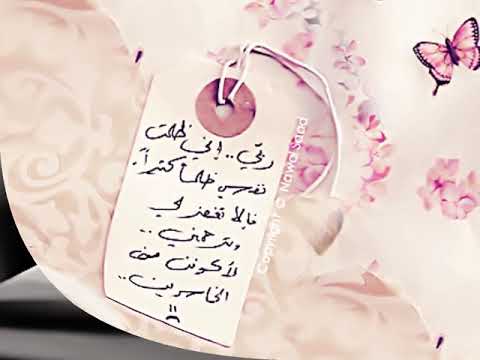 ربّي.. إني ظلمت
نفسي ظلماً كثيراً.
فإلا تغفر لي
وترحمني..
لأكونن من
الخاسرين..
Copyright © Nawal Saad